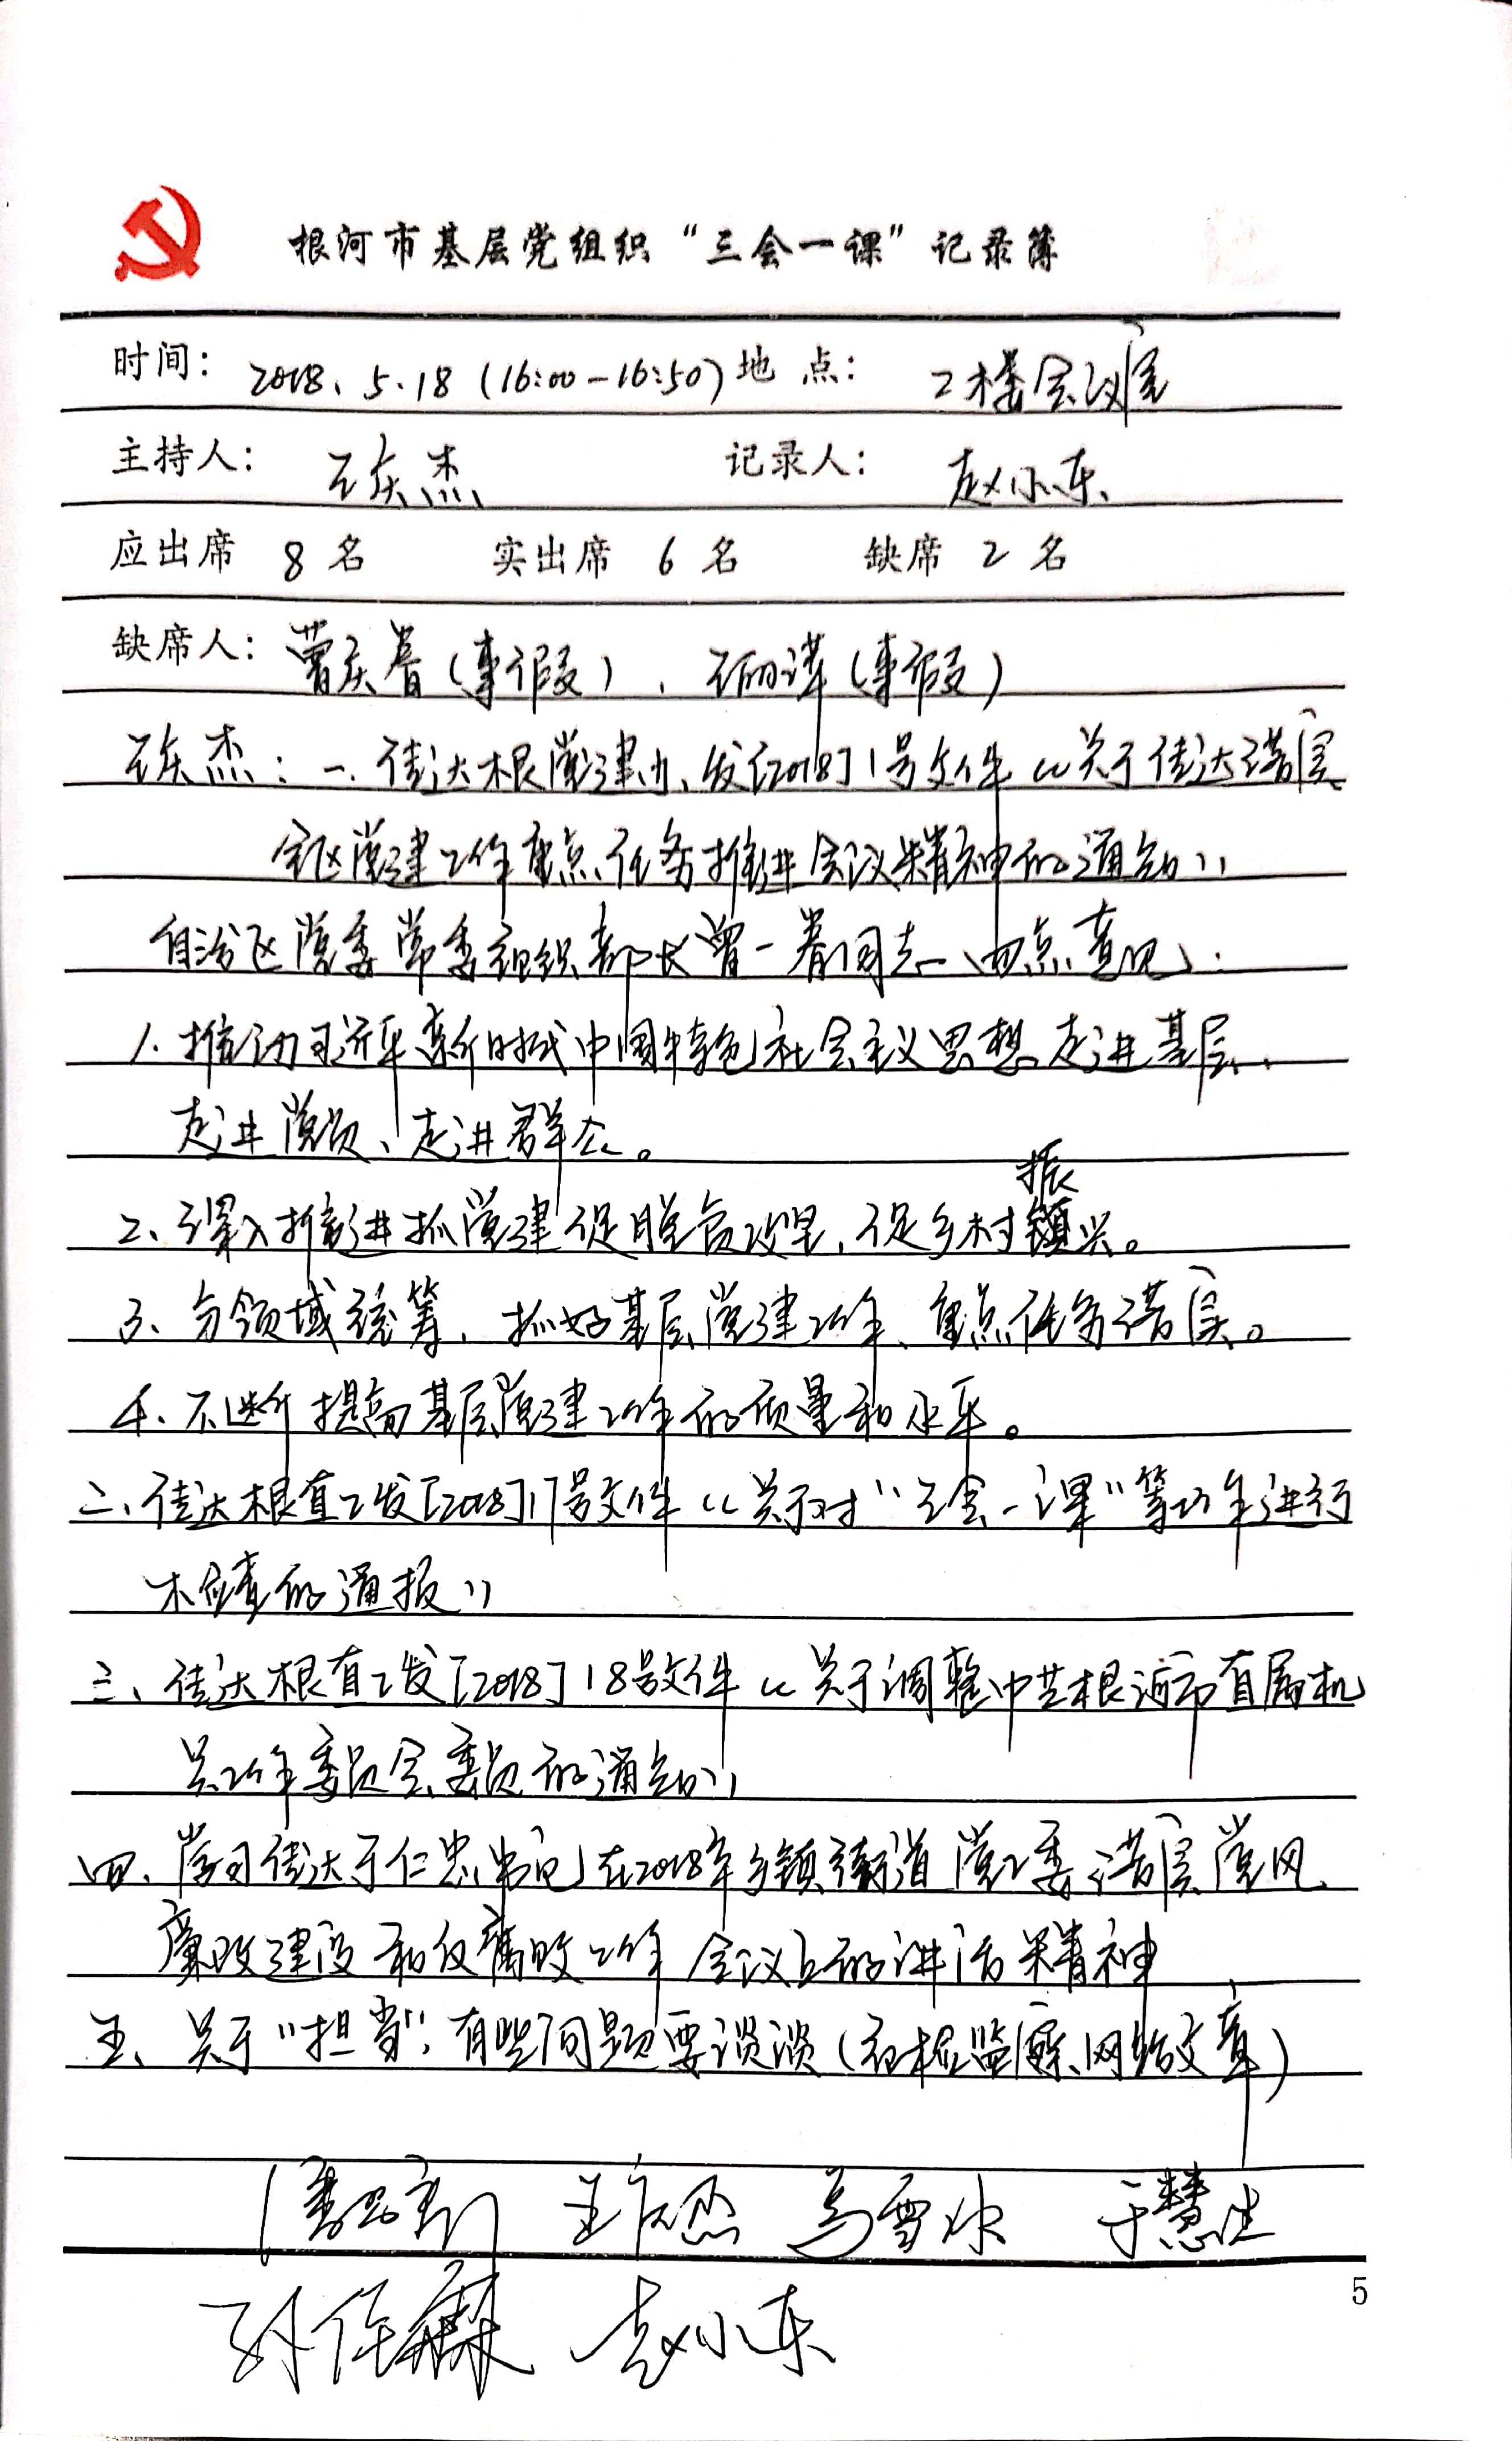 根河市基层党组织“三会一课”记录簿
时间: 2018、5.18 (16:00-16:50) 地点: 二楼会议室
主持人: 王庆杰 记录人: 赵小东
应出席 8 名 实出席 6 名 缺席 2 名
缺席人: 曹庆春(事假)、王丽萍(事假)
王庆杰:一、传达根党建办发[2018]1号文件《关于传达落实
全区党建工作重点任务推进会议精神的通知》
自治区党委常委组织部长曾一春同志 四点意见:
1.推动习近平新时代中国特色社会主义思想走进基层、
走进党员、走进群众。
2、深入推进抓党建促脱贫攻坚,促乡村振兴。
3、分领域统筹,抓好基层党建工作、重点任务落实。
4、不断提高基层党建工作的质量和水平。
二、传达根直工发[2018]17号文件《关于对“三会一课”等工作进行
检查的通报》
三、传达根直工发[2018]18号文件《关于调整中共根河市直属机
关工作委员会委员的通知》
四、学习传达于仁忠书记在2018年乡镇街道党工委落实党风
廉政建设和反腐败工作会议上的讲话精神
五、关于“担当”,有些问题要谈谈(纪检监察网络文章)
王庆杰 马雪冰 于慧生
5
赵小东